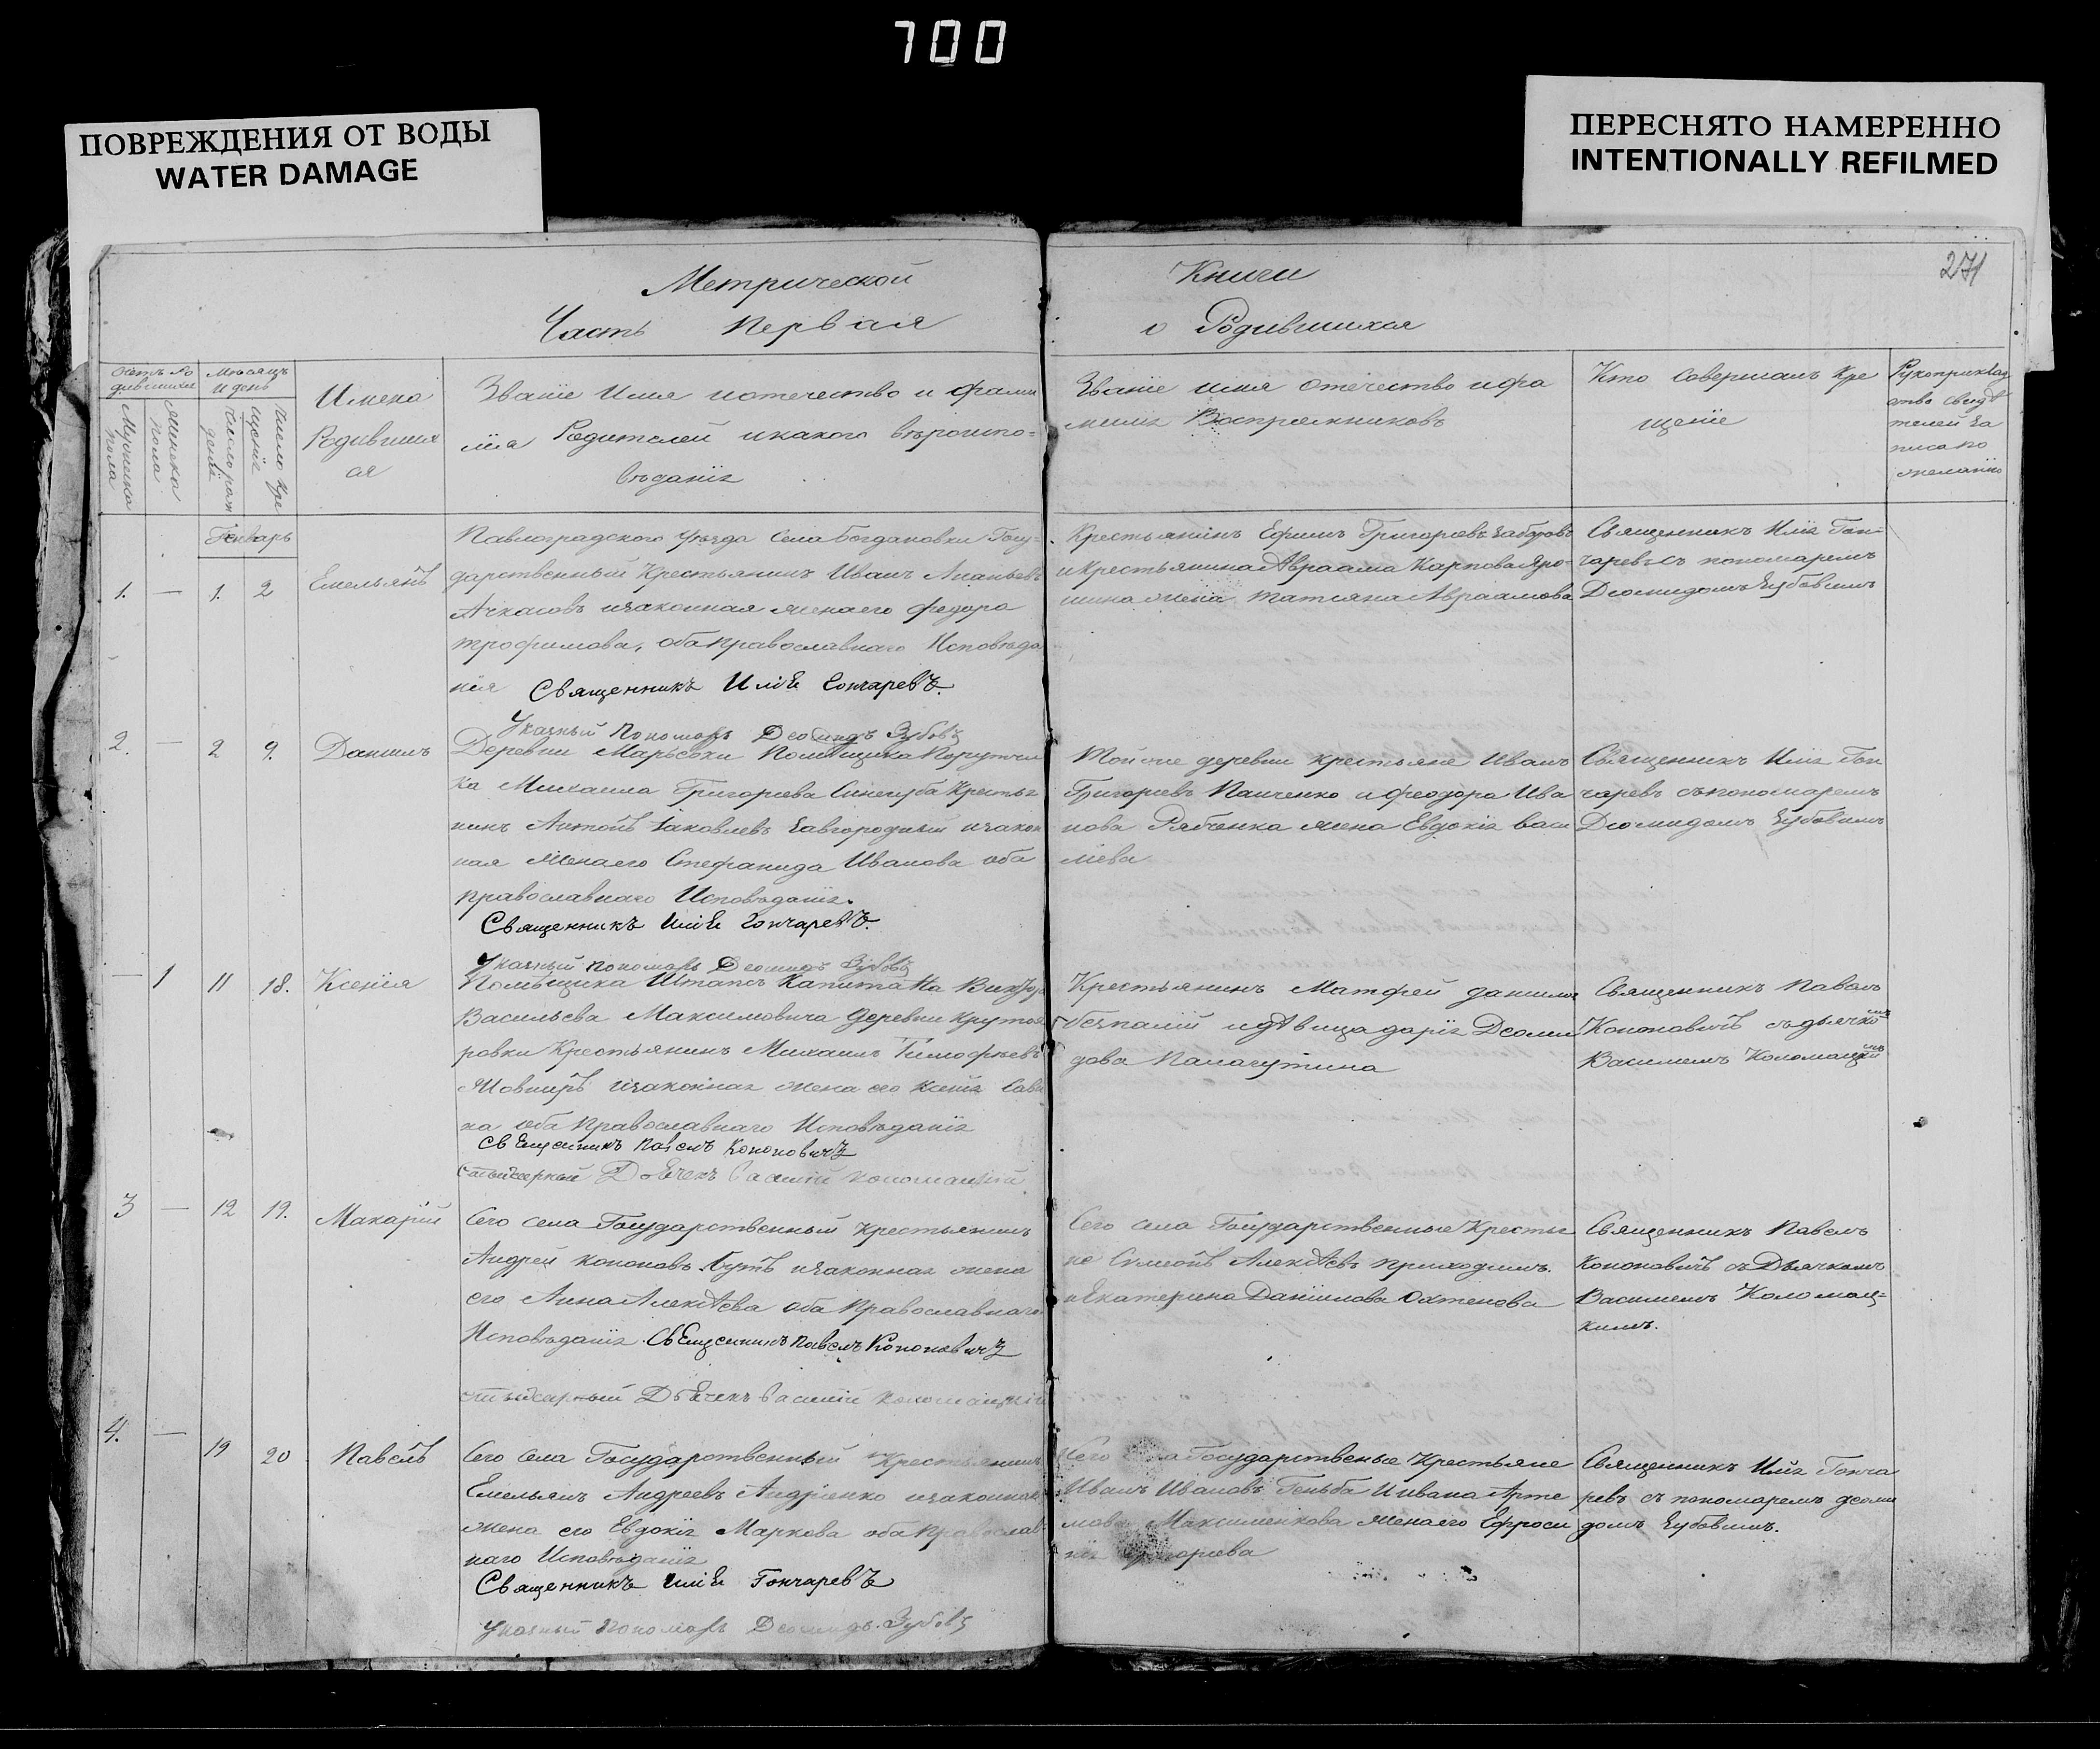 700
ПОВРЕЖДЕНИЯ ОТ ВОДЫ
WATER DAMAGE
ПЕРЕСНЯТО НАМЕРЕННО
INTENTIONALLY REFILMED
271
Метрической
Часть Первая
Книги
о Родившихся
Счетъ Ро
дившихся
Мужеска
пола
Женска
пола
Мѣсяцъ
и день
Число рож
денія
Число кре
щенія
Имена
Родивших
ся
Званіе Имя и отечество и фами
лія Родителей и какого вѣроиспо-
вѣданія
Званіе имя отечество и фа
милія Воспріемниковъ
Кто Совершалъ Кре
щеніе
Рукоприклад
ство свидѣ
телей за
писа по
желанію
Генварь
1. — 1. 2
Емельянъ
Павлоградского Уѣзда Села Богдановки Госу-
дарственный Крестьянинъ Иванъ Ананьевъ
Ачкасовъ и законная жена его Федора
Трофимова, оба православнаго Исповѣда
нія Священникъ Илія Гончаревъ.
Указный Пономарь Деомидъ Зубовъ
Крестьянинъ Ефимъ Григорьевъ
и Крестьянина Авраама Карпова
жена Татьяна Авраамова
Священникъ Илія Гон-
чаревъ съ пономаремъ
Деомидомъ Зубовымъ
2. — 2 9.
Даніилъ
Деревни Марьевки Помѣщика Поручи
ка Михаила Григорьева Синегуба Крестья
нинъ Антонъ Яковлевъ Завгородный и закон
ная жена его Стефанида Иванова оба
православнаго Исповѣданія.
Священникъ Илія Гончаревъ.
Указный пономарь Деомидъ Зубовъ
Той же деревни крестьяне Иванъ
Григорьевъ Панченко и Феодора Ива
нова Рябченка жена Евдокія Васи
лиева
Священникъ Илія Гон
чаревъ съ пономаремъ
Деомидомъ Зубовымъ
— 1 11 18.
Ксенія
Помѣщика Штапсъ Капитана
Васильева Максимовича деревни Крутоя
ровки Крестьянинъ Михаилъ Тимофѣевъ
и законная жена его Ксенія Сави
на оба Православнаго Исповѣданія
Священникъ Павелъ Кононовичъ
Дьячекъ Василій Коломацкій
Крестьянинъ Матфей Даниловъ
Безпалій и дѣвица Дарія Деоми
дова
Священникъ Павелъ
Кононовичъ съ дьячкомъ
Василіемъ Коломацкимъ
3 — 12 19.
Макарій
Сего села Государственный крестьянинъ
Андрей Кононовъ и законная жена
его Анна Алексѣева оба Православнаго
Исповѣданія Священникъ Павелъ Кононовичъ
Дьячекъ Василій Коломацкій
Сего села Государственные Крестья
не Симеонъ Алексѣевъ
и Екатерина Даніилова
Священникъ Павелъ
Кононовичъ съ Дьячкомъ
Василіемъ Коломац-
кимъ.
4. — 19 20
Павелъ
Сего Села Государственный Крестьянинъ
Емельянъ Андреевъ Андріенко и законная
жена его Евдокія Маркова оба Православ
наго Исповѣданія
Священникъ Илія Гончаревъ
Указный Пономарь Деомидъ Зубовъ
Государственые Крестьяне
Иванъ Ивановъ Геньба и Ивана Арте
мова Максименкова жена его Ефроси
Священникъ Илія Гонча
ревъ съ пономаремъ Деоми
домъ Зубовымъ.